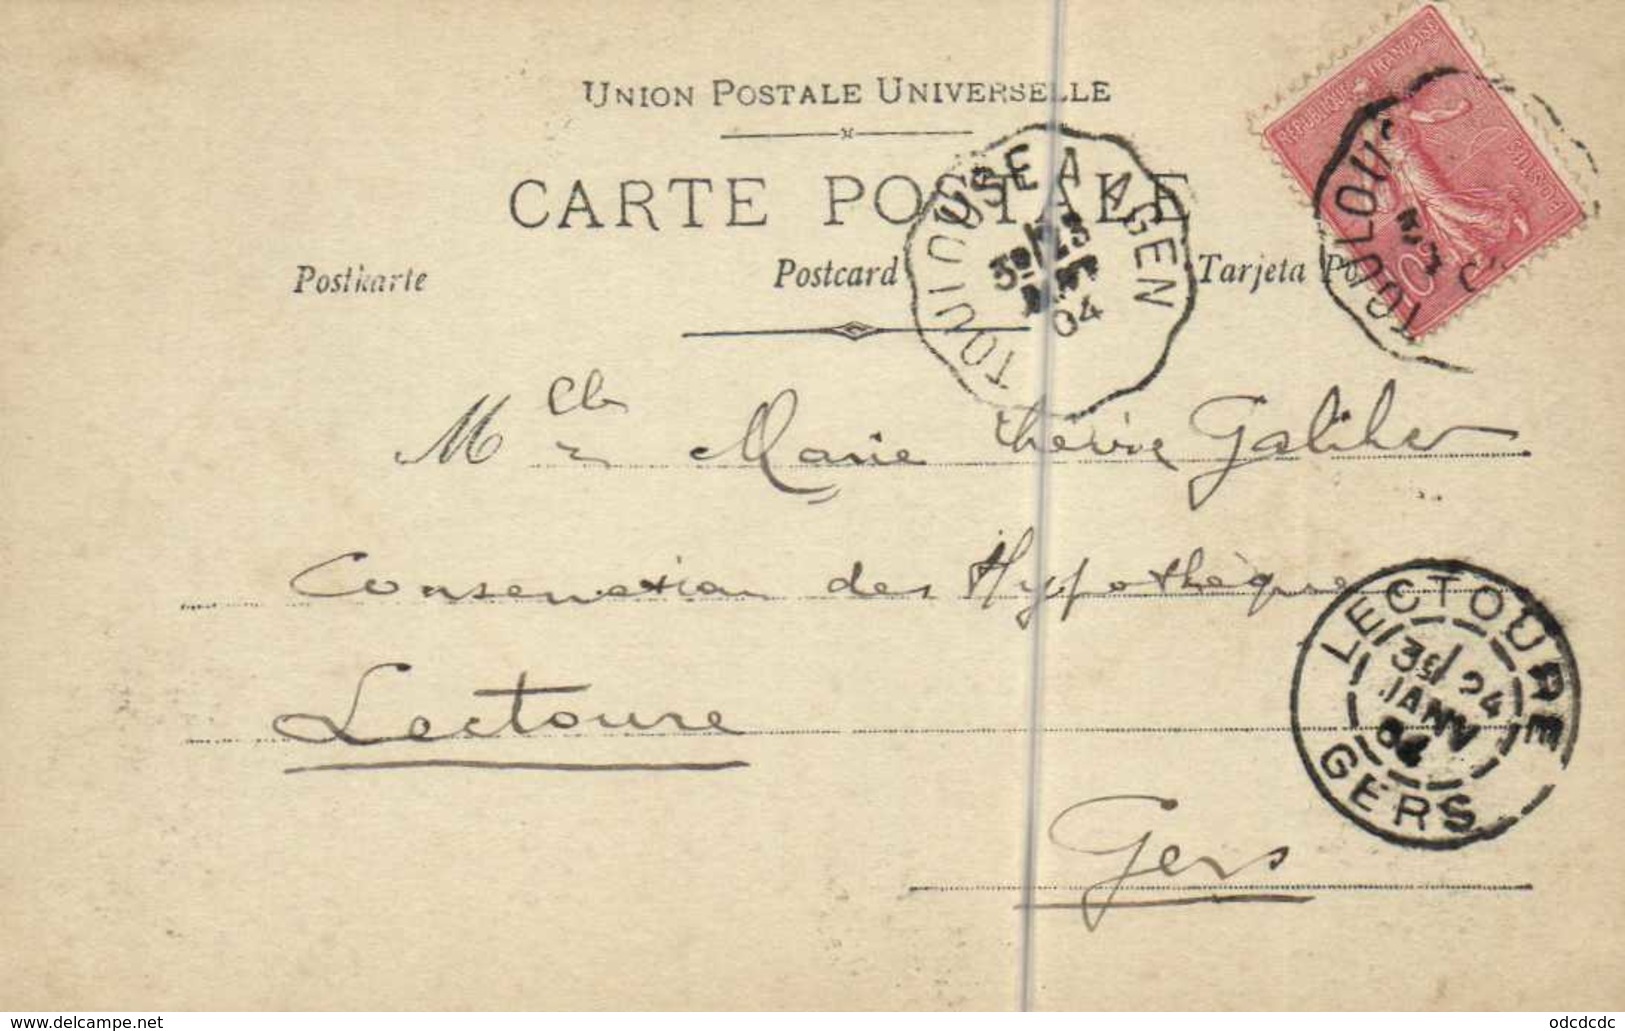 UNION POSTALE UNIVERSELLE
CARTE POSTALE
Postkarte Postcard Tarjeta
TOULOUSE A AGEN
3E 23
JANV
04
REPUBLIQUE FRANÇAISE
POSTES
10
TOULOUSE
Mlle Marie
Conservation des Hypothèques
Lectoure
Gers
LECTOURE
3E 24
JANV
04
GERS
www.delcampe.net
odcdcdc